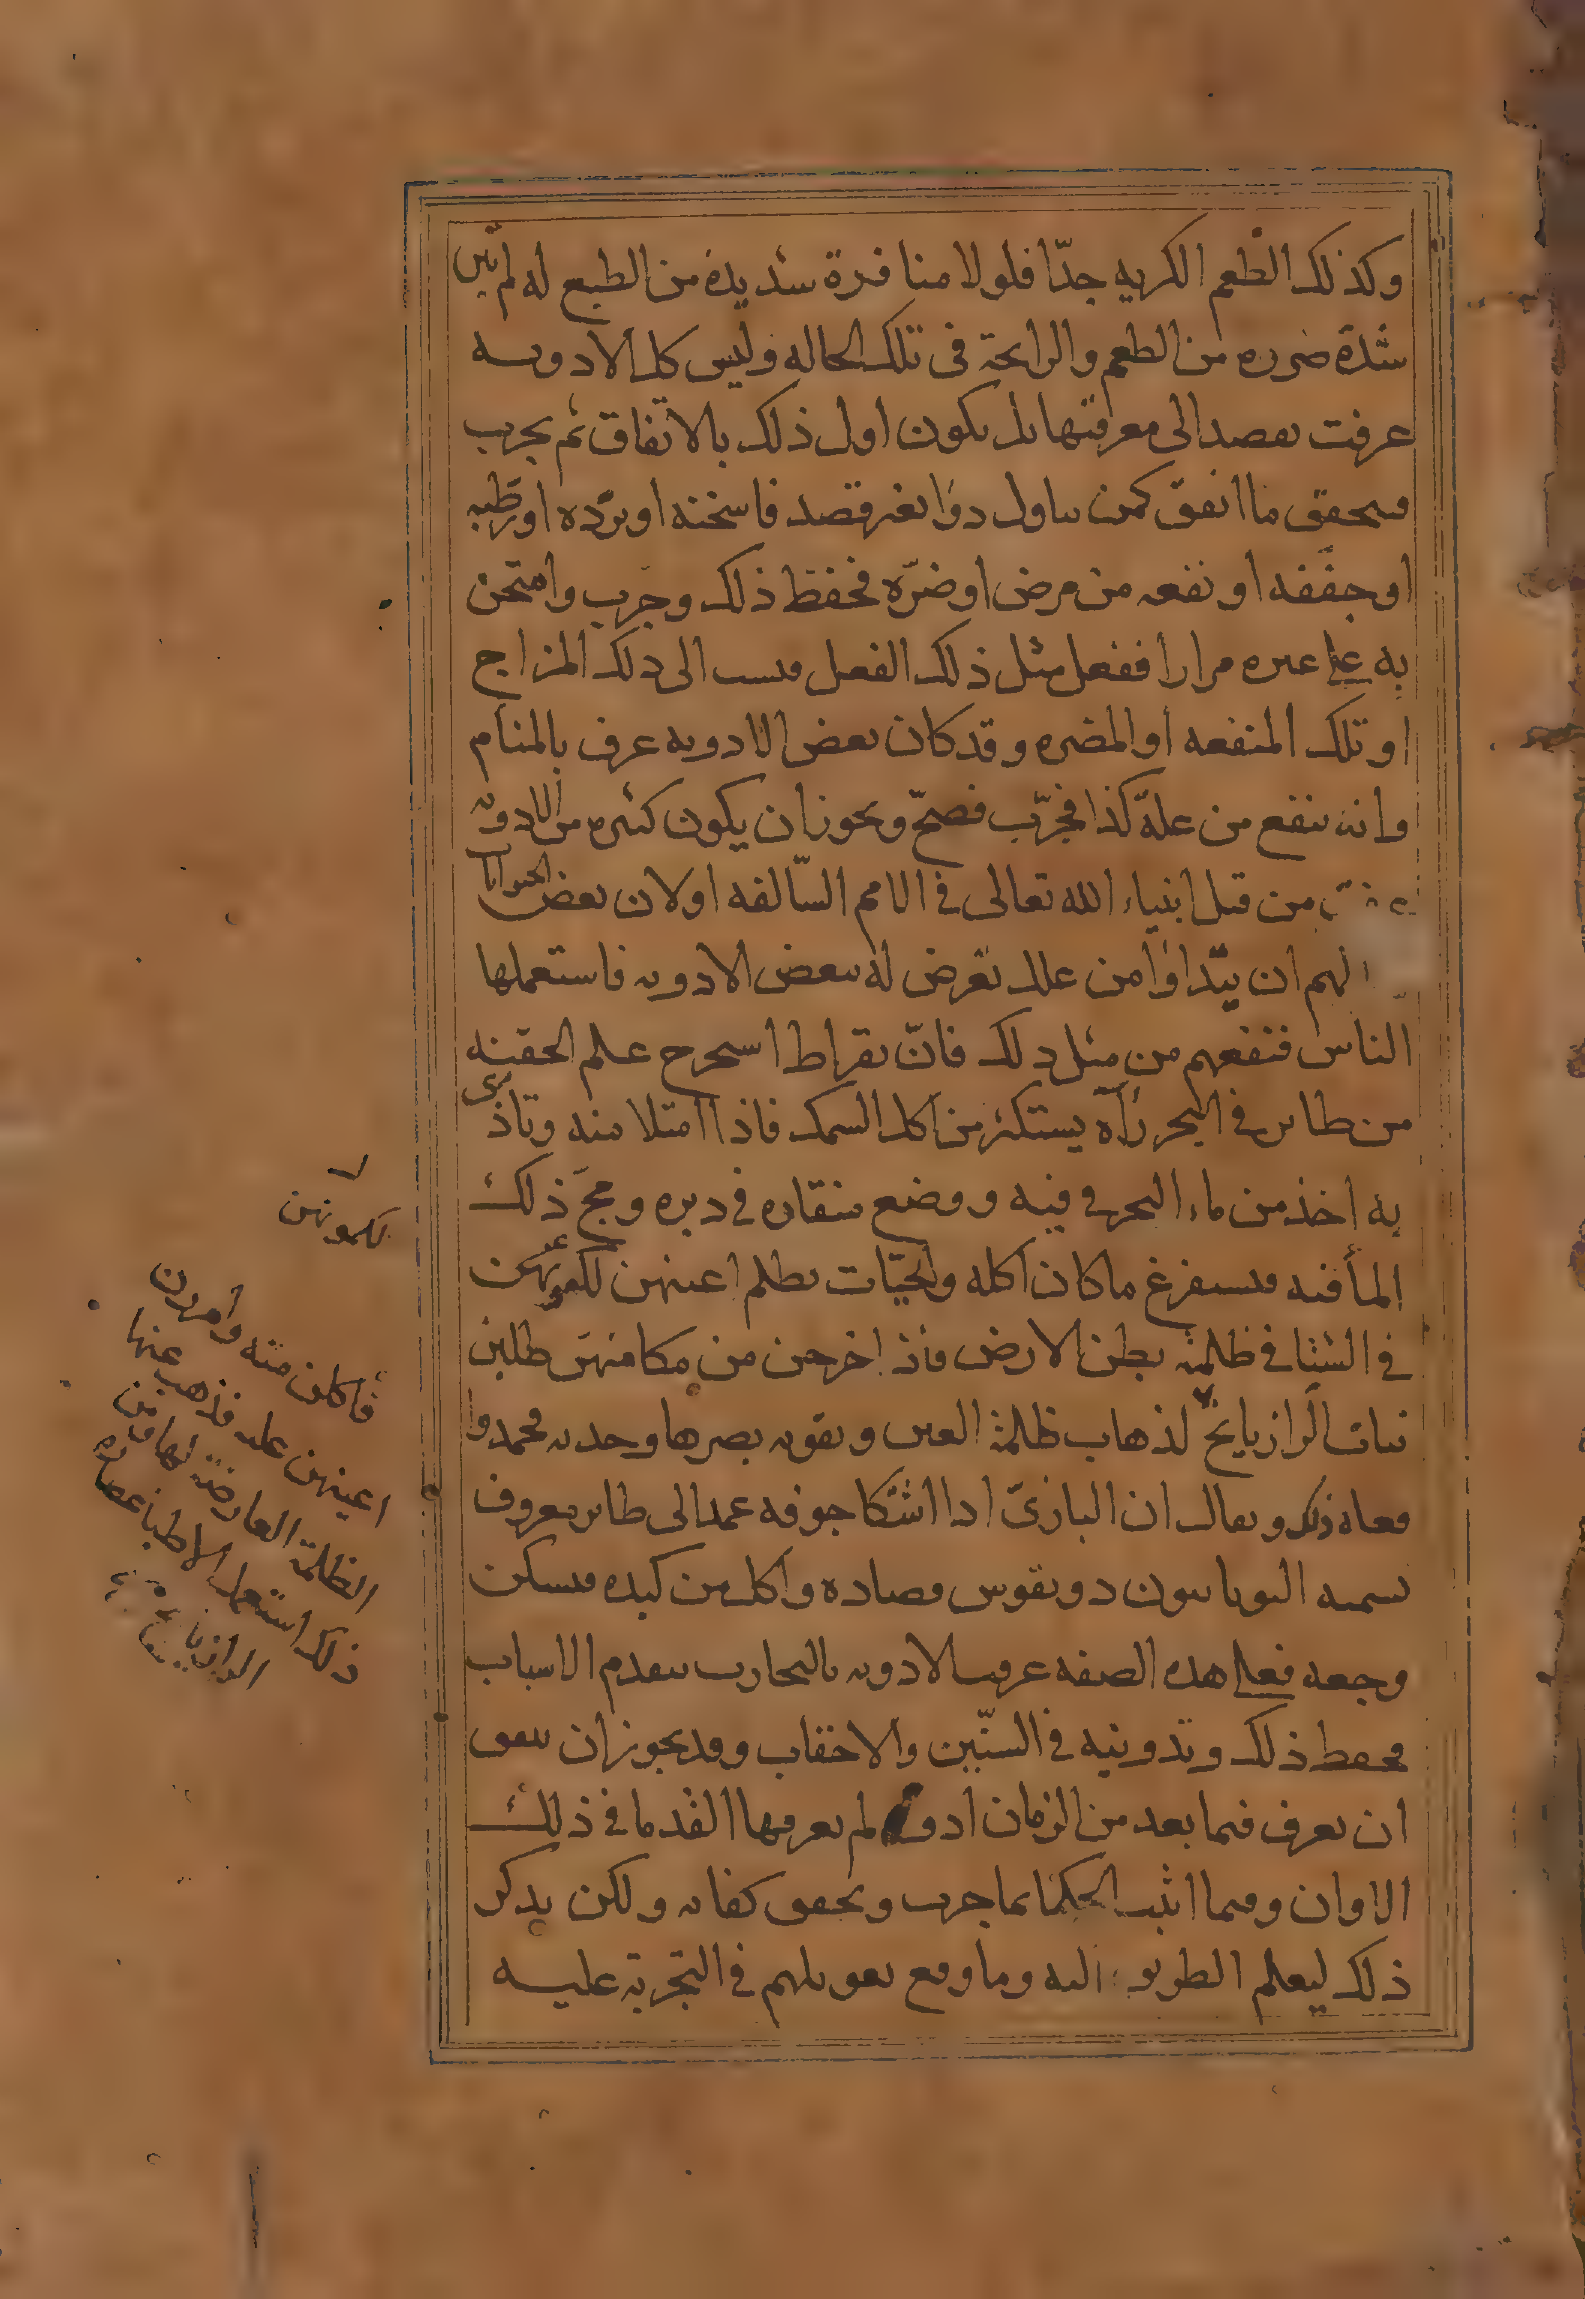 وكذلك الطعم الكريه جدّا فلولا منافرة شديدة من الطبع له لم تبن
شدة ضرره من الطعم والرايحة في تلك الحاله وليس كل الادويه
عرفت بقصد الى معرفتها بل يكون اول ذلك بالاتفاق ثم يجرب
فيحقق ما اتفق كمن يناول دوا بغير قصد فاسخنه او برّده او رطبه
او جففه او نفعه من مرض او ضرّه فحفظ ذلك وجرب وامتحن
به على غيره مرارا ففعل مثل ذلك الفعل فنسب الى ذلك المزاج
او تلك المنفعه او المضره وقد كان بعض الادويه عرف بالمنام
وانه ينفع من علة كذا فجرّب فصحّ ويجوز ان يكون كثيره من الادويه
من قبل انبياء الله تعالى في الامم السّالفه او لان بعض الحيوانات
الهم ان يتداوا من علل تعرض له ببعض الادويه فاستعملها
الناس فنفعهم من مثل ذلك فانّ بقراط استخرج علم الحقنه
من طاير في البحر رآه يستكثر من اكل السمك فاذا امتلا منه وتاذى
به اخذ من ماء البحر في فيه ووضع منقاره في دبره ومجّ ذلك
الما فيه فيستفرغ ما كان اكله والحيّات يظلم اعينهن لكمونهن
في الشتا في ظلمة بطن الارض فاذا خرجن من مكامنهن طلبن
نبات الرازيانج لذهاب ظلمة العين ويقويه بصرها وحديه فحمدوا
فعله ذلك ويقال ان البازي اذا اشتكا جوفه عمد الى طاير معروف
يسميه اليونانيون دويفوس فصاده واكل من كبده فيسكن
وجعه فعلى هذه الصفه عرفت الادويه بالتجارب بتقدم الاسباب
بحفظ ذلك وتدوينه في السنين والاحقاب وقد يجوز ان يتفق
ان يعرف فيما بعد من الزمان ادويه لم يعرفها القدما في ذلك
الاوان وفيما اثبت الحكما بما جرب وتحقق كفايه ولكن يذكر
ذلك ليعلم الطريق اليه وما وقع تعويلهم في التجربة عليه
لكمونهن
فاكلن منه وامررن
اعينهن عليه فذهب عنها
الظلمة العارضة لها فمن
ذلك استعمل الاطبا عصاره
الرازيانج